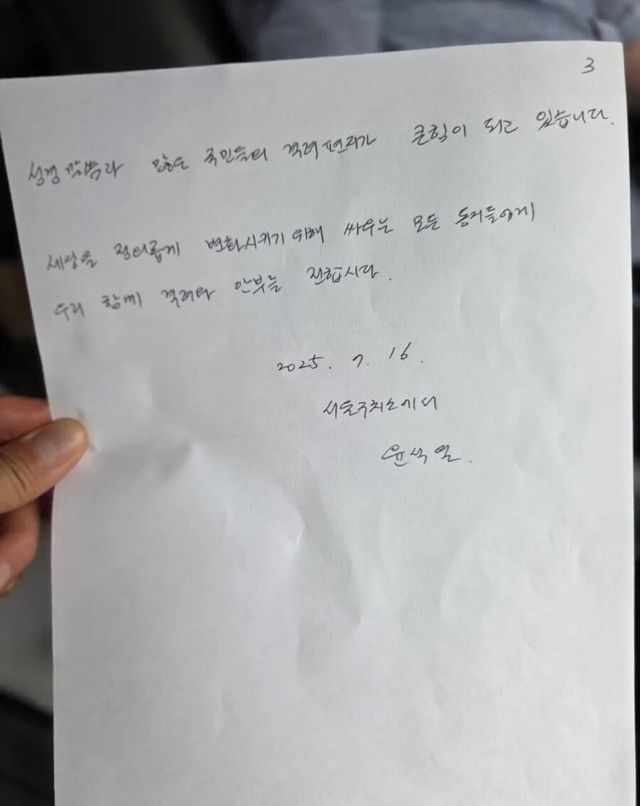 3
성경 말씀과 많은 국민들의 격려 편지가 큰힘이 되고 있습니다.
세상을 정의롭게 변화시키기 위해 싸우는 모든 동지들에게
우리 함께 격려와 안부를 전합시다.
2025. 7. 16.
서울구치소에서
윤석열.